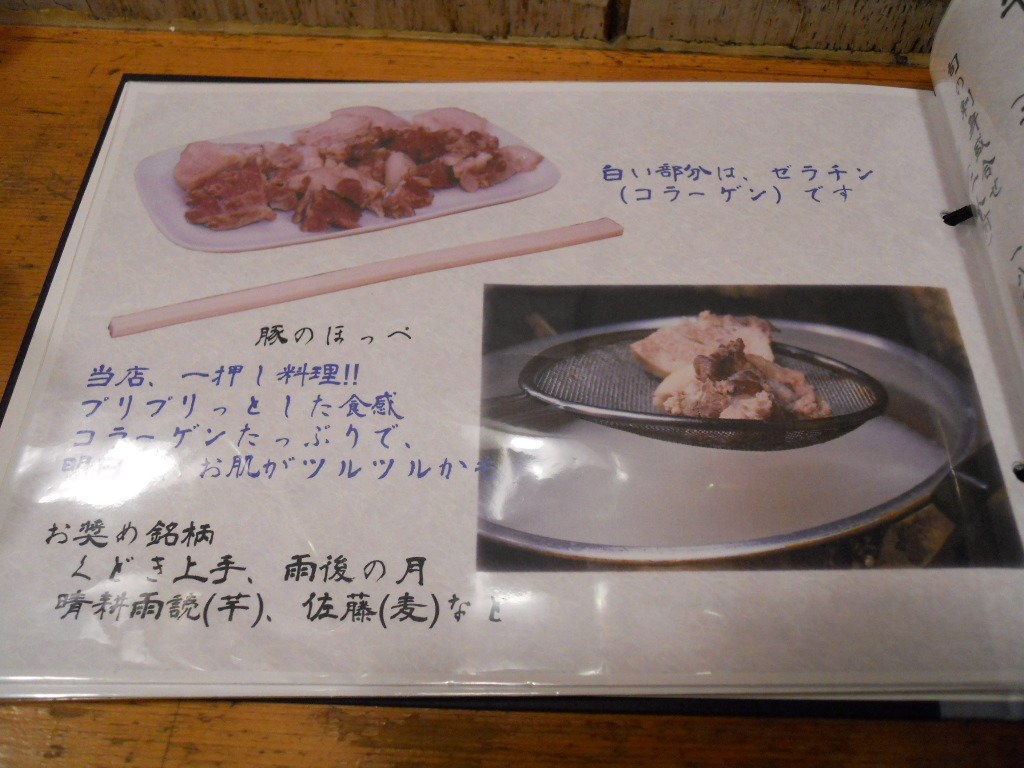 白い部分は、ゼラチン
(コラーゲン)です
豚のほっぺ
当店、一押し料理!!
プリプリっとした食感
コラーゲンたっぷりで、
お肌がツルツルかも
お奨め銘柄
くどき上手、雨後の月
晴耕雨読(芋)、佐藤(麦)など
旬の